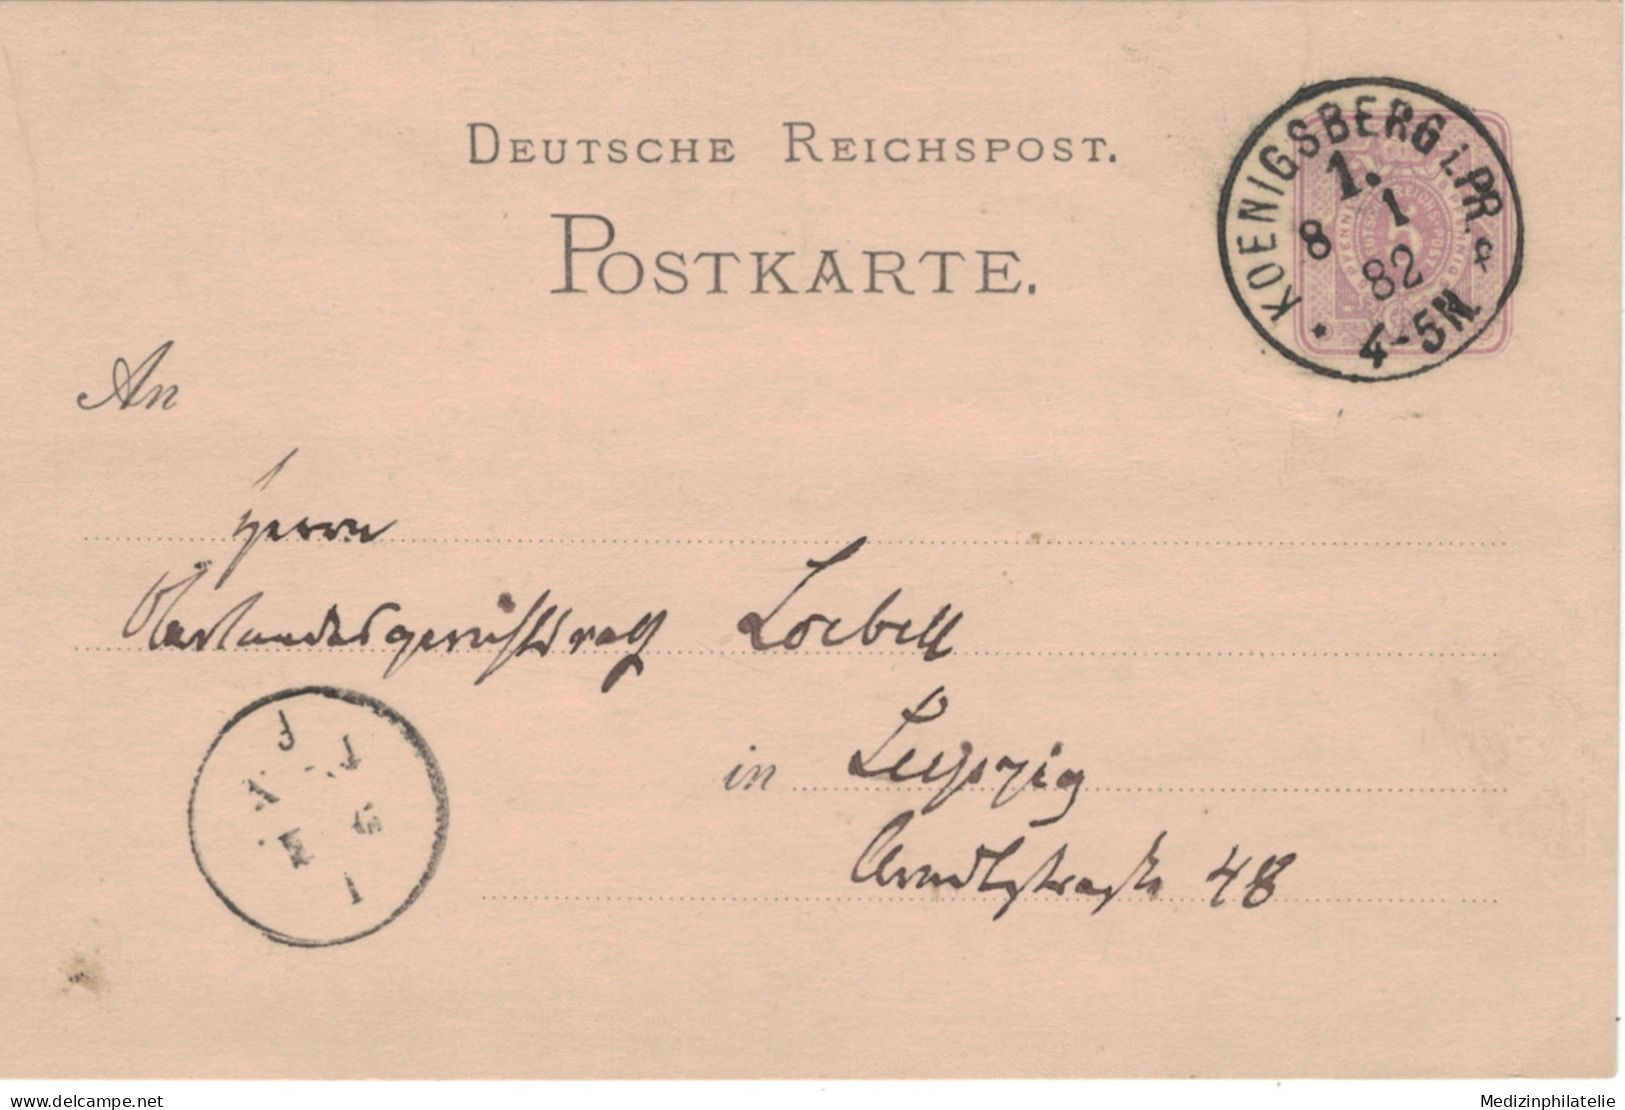 DEUTSCHE REICHSPOST.
POSTKARTE.
KOENIGSBERG i. PR. a
1.
8 1
82
4-5N.
An
Herrn
Oberlandesgerichtsrath Loebell
in Leipzig
Arndtstraße 48
www.delcampe.net
Medizinphilatelie